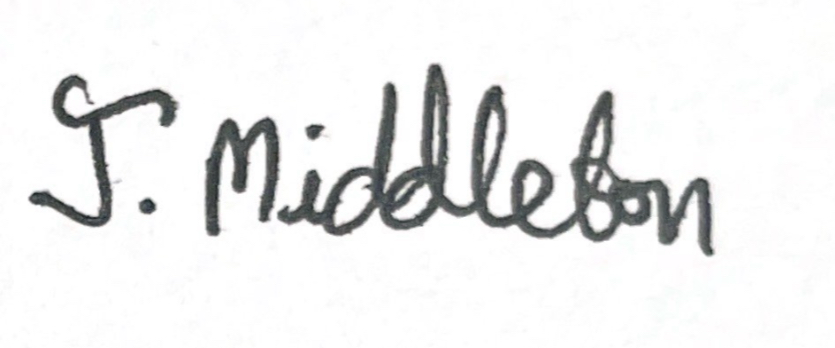 J. Middleton